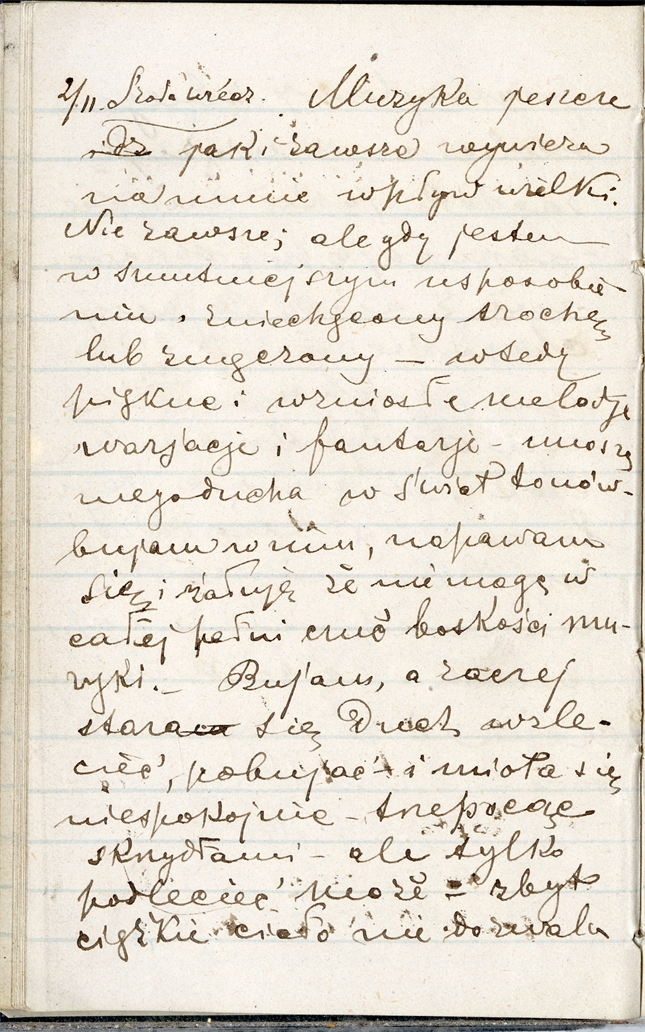 2/11. Środa wiecz. Muzyka jeszcze
jak i zawsze wywiera
na mnie wpływ wielki.
Nie zawsze; ale gdy jestem
w smutniejszym usposobie-
niu, zniechęcony trochę
lub zmęczony — wtedy
piękne i wzniosłe melodje
warjacje i fantazje - unoszą
mego ducha w świat tonów -
bujam w nim, napawam
się i żałuję że nie mogę w
całej pełni czuć boskości mu-
zyki. — Bujam, a raczej
stara się Duch wzle-
cieć, pobujać i miota się
niespokojnie - trzepocąc
skrzydłami - ale tylko
podlecieć może - zbyt
ciężkie ciało nie dozwala